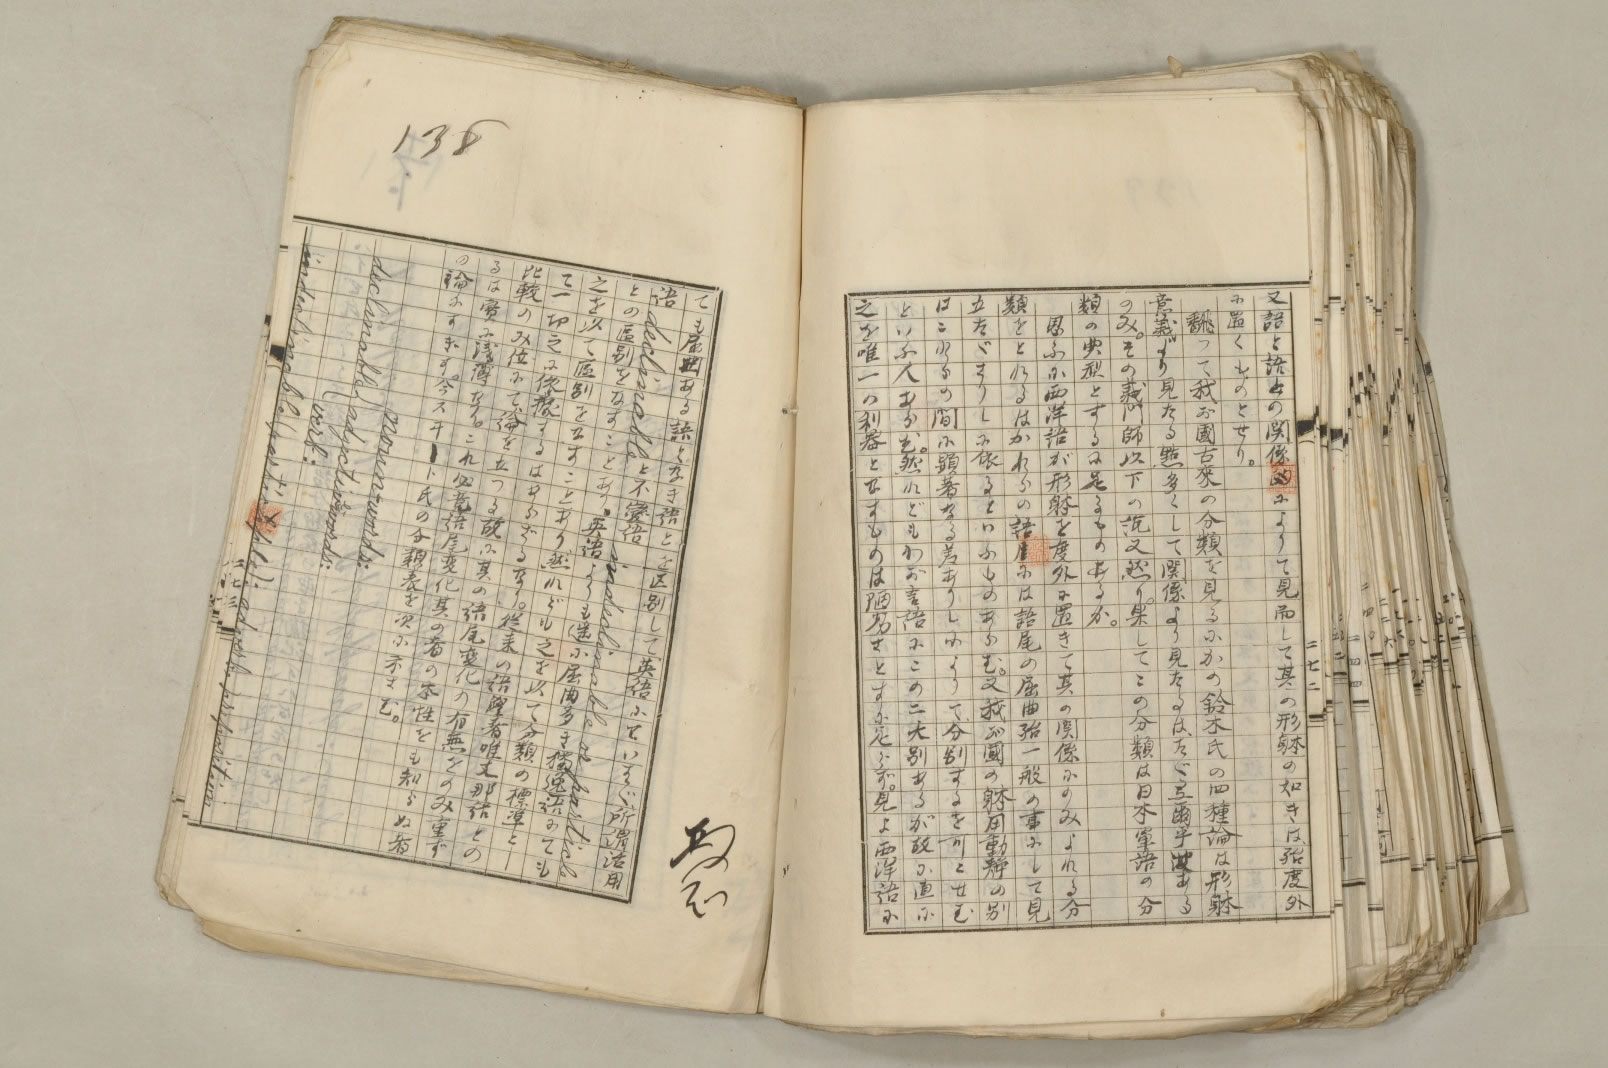 又語と語との関係に
よりて見而して其の形躰の如きは殆度外
に置くものとせり。
飜つて我が國古來の分類を見るにかの鈴木氏の四種論は形躰
意義より見たる點多くして関係より見たるは、たゞ弖爾乎波ある
のみ。その義門師以下の説又然り。果してこの分類は日本單語の分
類の典型とするに足るものあるか。
思ふに西洋語が形躰を度外に置きて其の関係にのみよれる分
類をとれるはかれらの語には語尾の屈曲殆一般の事にして見
立たざりしに依るといふものあらむ。又我が國の躰用動静の別
はこれらの間に顕著なる差ありしによりて分別するを可とせむ
といふ人あらむ。然れどもわが言語にこの二大別あるが故に直に
之を唯一の利器となすものは陋劣なとすに足らず。見よ西洋語に
二七二
138
ても屈曲ある語となき語とを区別して、英語にていはゞ所謂活用
語 declinable と不變語 indeclinable or particle
との區別をなすことあり。英語よりも遙に屈曲多き
之を以て區別をなすことあり然れども之を以て分類の標準と
て一切之に依據するはあらざるなり。從来の語學者唯支那語との
比較のみ位にて論を立つる故に其の語尾變化の有無をのみ重ず
るは實に淺薄なる。これ必竟語尾變化其の者の本性をも知らぬ者
の論にすぎず。今スヰート氏の分類表を次に示さむ。
declinable noun-words:
adjective-words:
verb:
indeclinable (particles): adverb, preposition
二七三